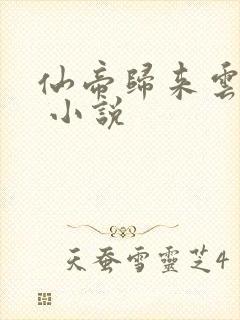 仙帝歸來雲
小說
天蚕雪靈芝4